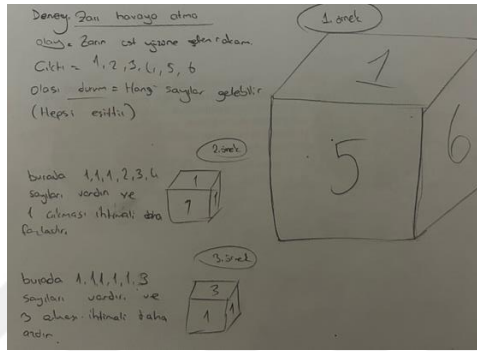 Deney: Zarı havaya atma
olay = Zarın üst yüzüne gelen rakam.
Çıktı = 1, 2, 3, 4, 5, 6
olası durum = Hangi sayılar gelebilir
(Hepsi eşittir)
1. örnek
1
5
6
2. örnek
burada 1,1,1,2,3,4
sayıları vardır ve
1 çıkması ihtimali daha
fazladır.
1
1
1
3. örnek
burada 1,1,1,1,1,3
sayıları vardır. ve
3 ihtimali daha
azdır.
3
1
1